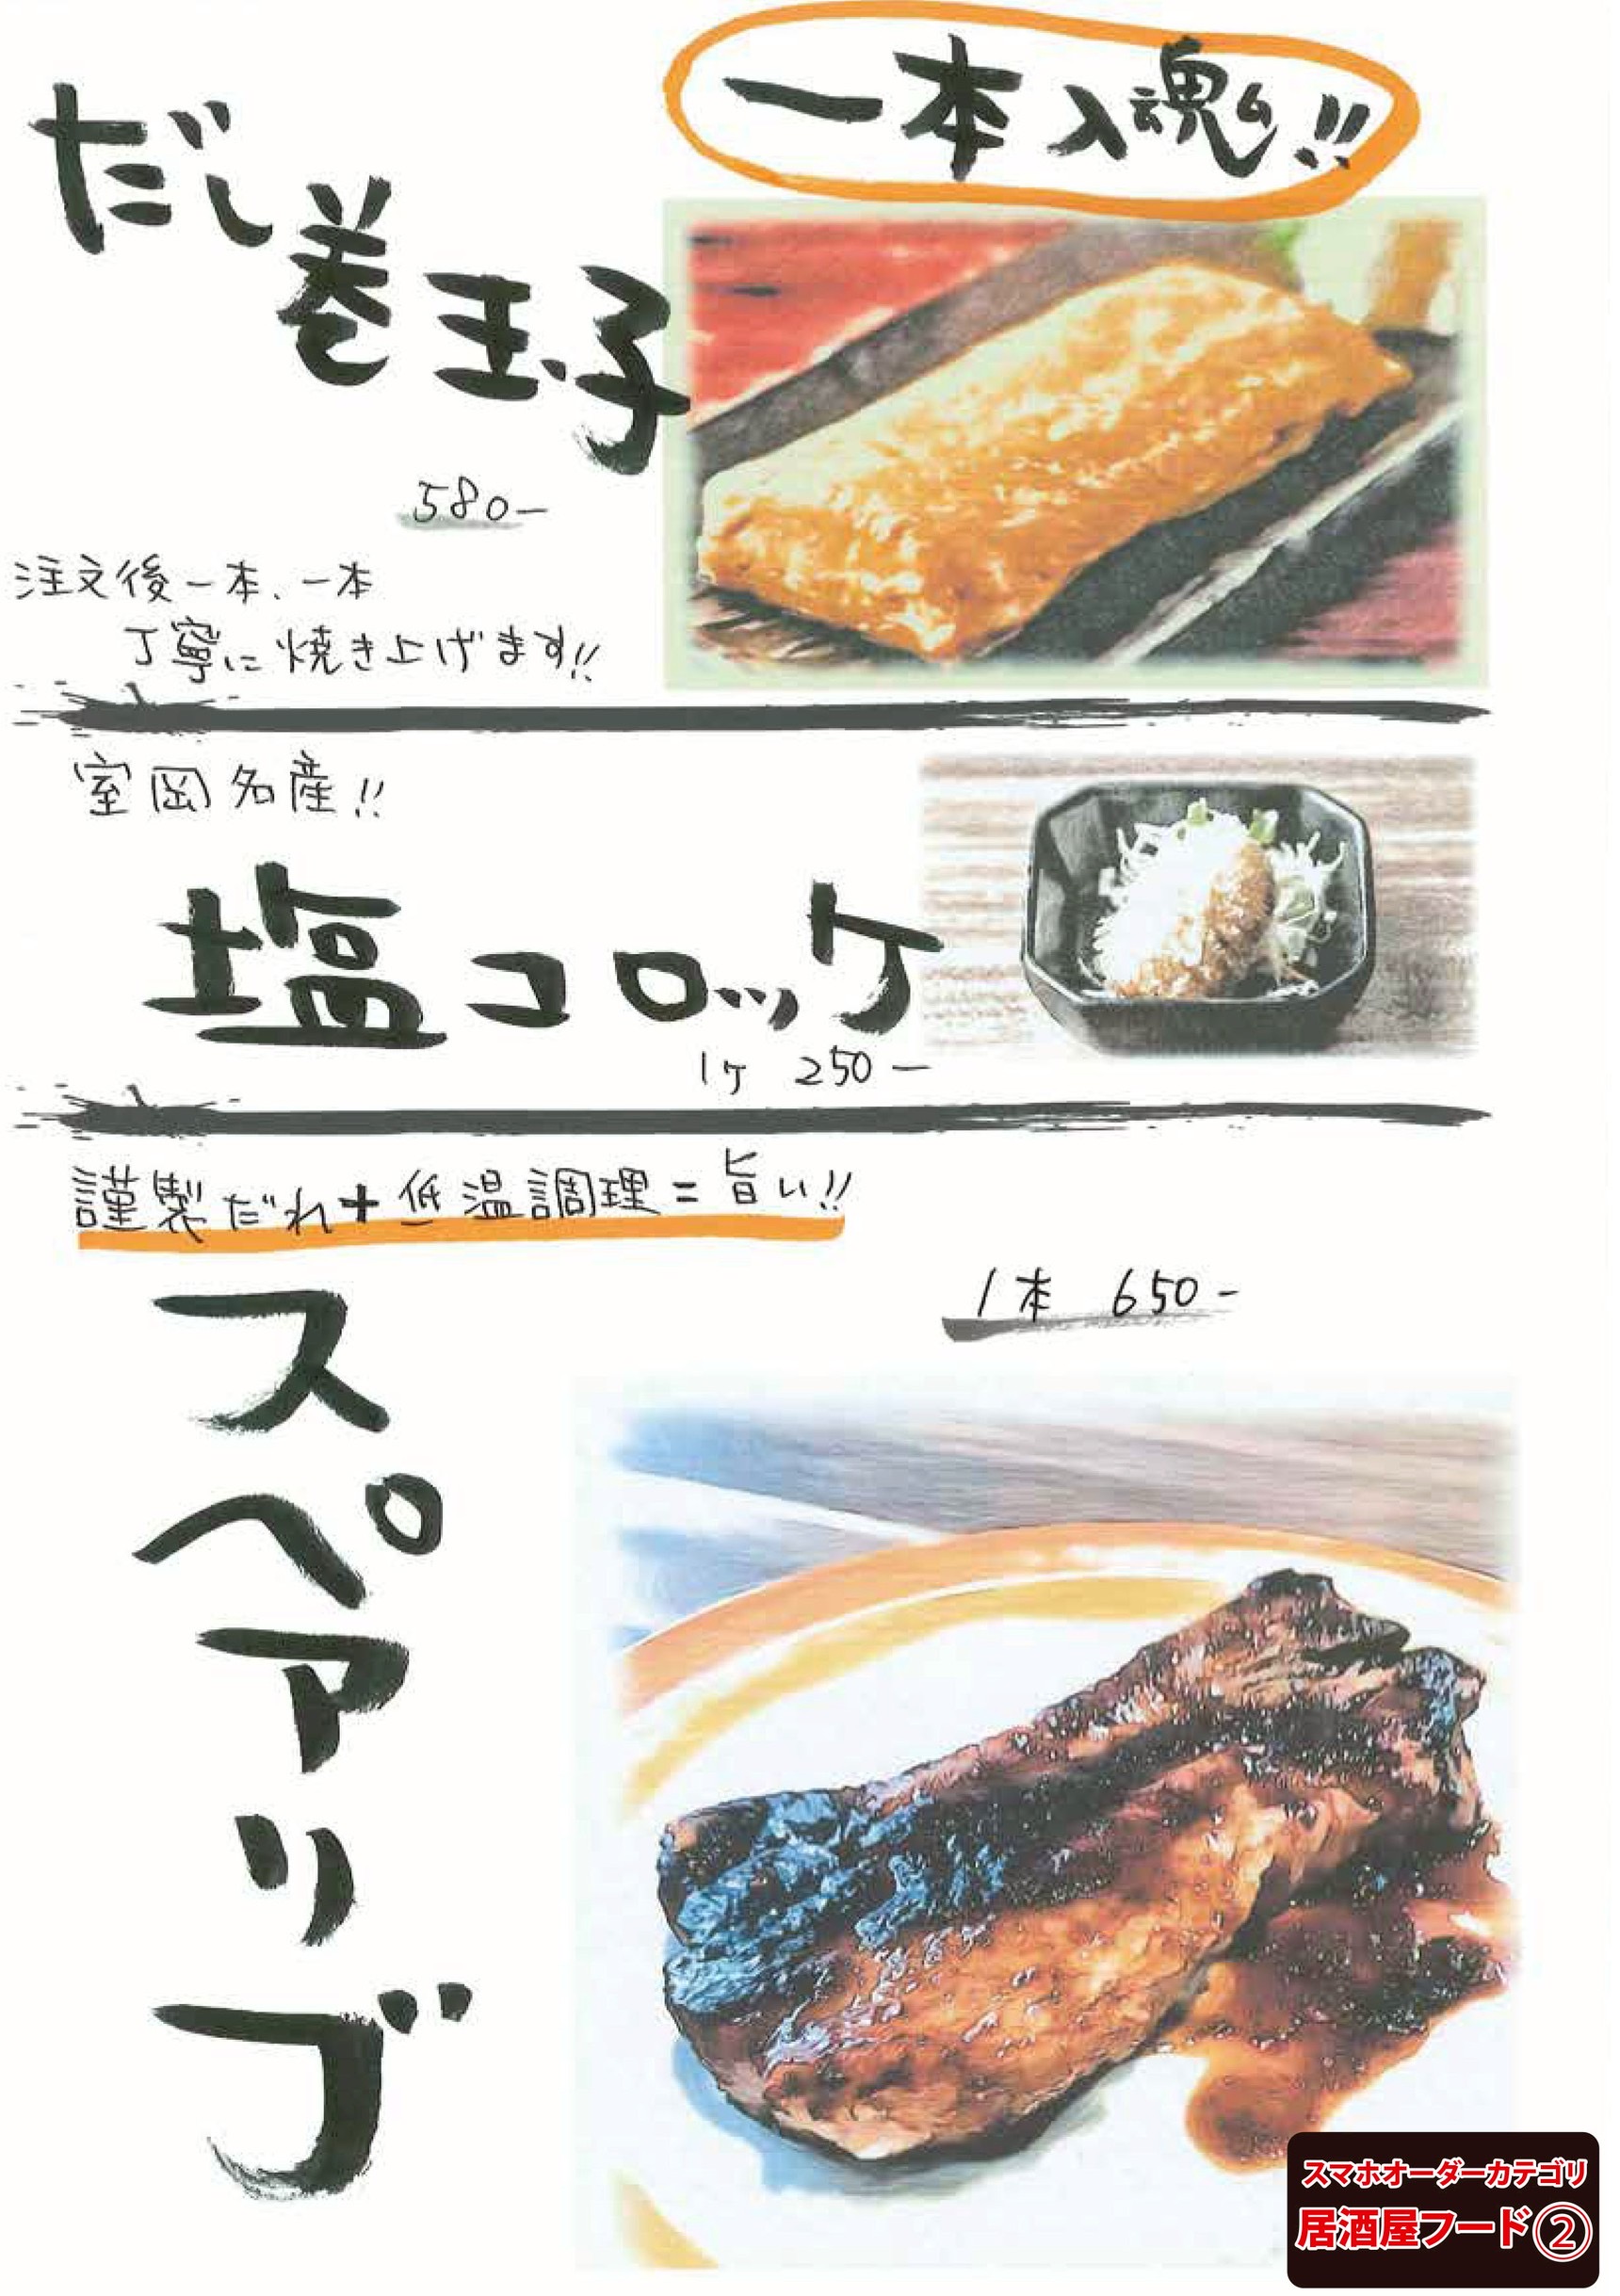 一本入魂!!
だし巻玉子
580-
注文後一本、一本
丁寧に焼き上げます!!
室岡名産!!
塩コロッケ
1ヶ 250-
謹製だれ+低温調理=旨い!!
1本 650-
スペアリブ
スマホオーダーカテゴリ
居酒屋フード②